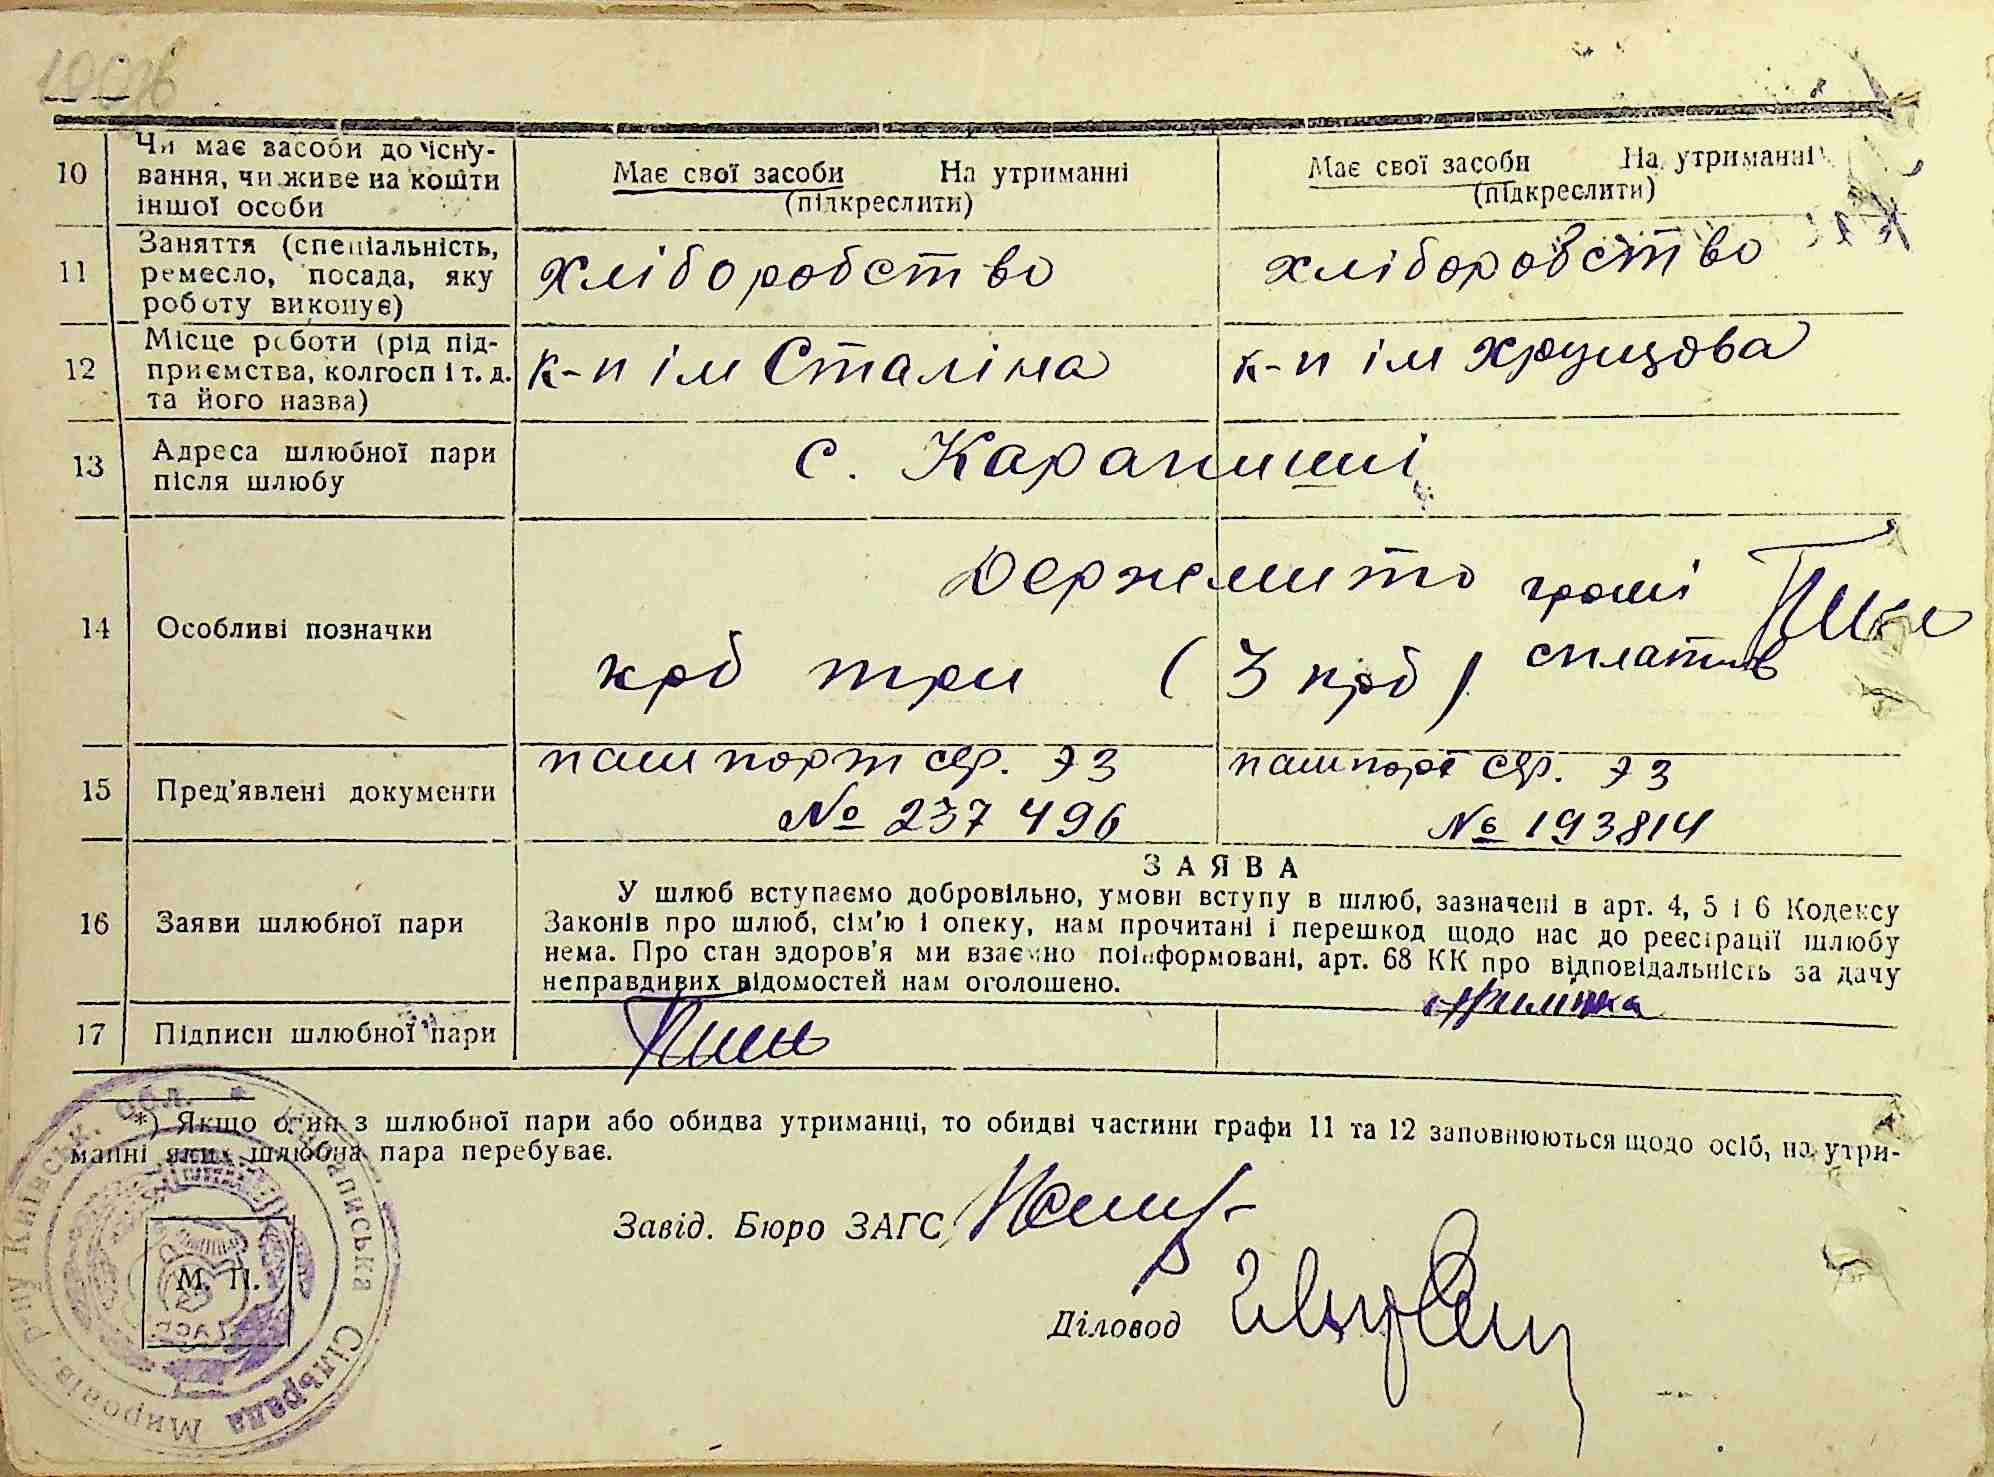 10
Чи має засоби до існу-
вання, чи живе на кошти
іншої особи
Має свої засоби На утриманні
(підкреслити)
Має свої засоби На утриманні
(підкреслити)
11
Заняття (спеціальність,
ремесло, посада, яку
роботу виконує)
хліборобство
хліборобство
12
Місце роботи (рід під-
приємства, колгосп і т. д.
та його назва)
к-п ім Сталіна
к-п ім Хрущова
13
Адреса шлюбної пари
після шлюбу
с. Карапиші
14
Особливі позначки
Держмито гроші
крб три (3 крб) сплатив
15
Пред'явлені документи
пашпорт сер. ЭЗ
№ 237496
пашпорт сер. ЭЗ
№ 193814
16
Заяви шлюбної пари
ЗАЯВА
У шлюб вступаємо добровільно, умови вступу в шлюб, зазначені в арт. 4, 5 і 6 Кодексу
Законів про шлюб, сім'ю і опеку, нам прочитані і перешкод щодо нас до реєстрації шлюбу
нема. Про стан здоров'я ми взаємно поінформовані, арт. 68 КК про відповідальність за дачу
неправдивих відомостей нам оголошено.
17
Підписи шлюбної пари
*) Якщо один з шлюбної пари або обидва утриманці, то обидві частини графи 11 та 12 заповнюються щодо осіб, на утри-
манні яких шлюбна пара перебуває.
Завід. Бюро ЗАГС
Діловод
М. П.
Караписька Сільрада Миронів. р-ну Київськ. обл.